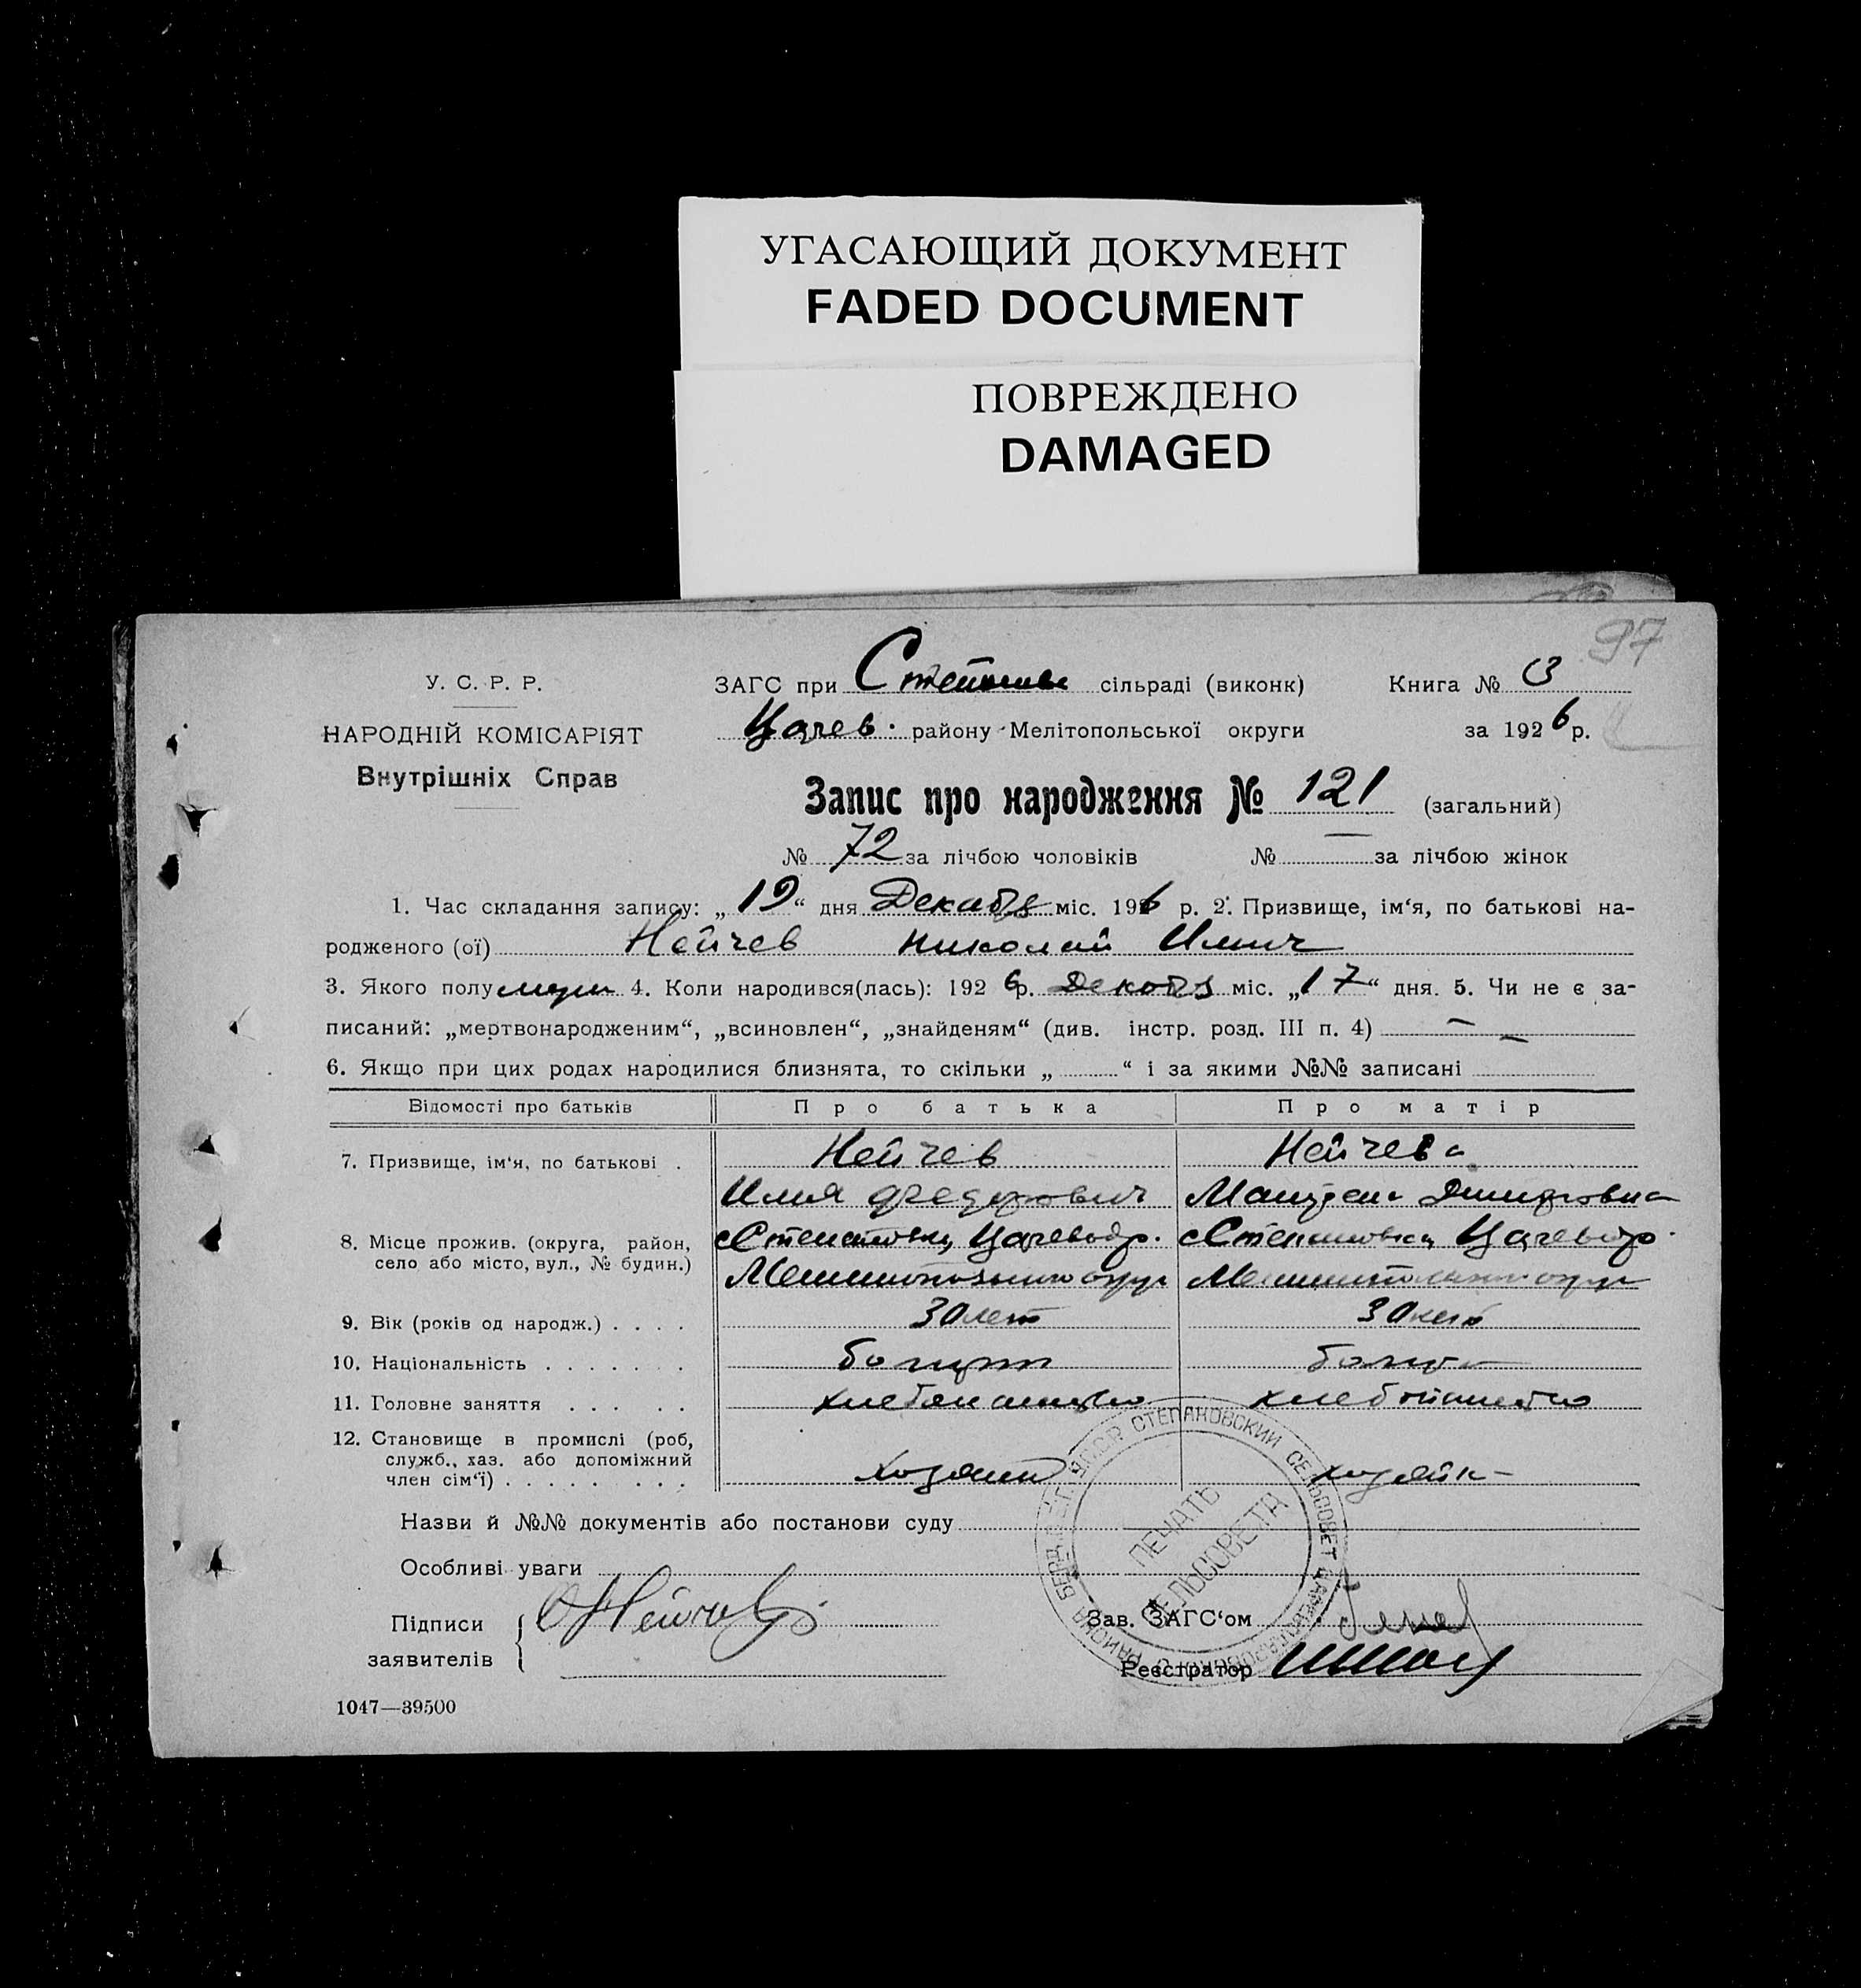 УГАСАЮЩИЙ ДОКУМЕНТ
FADED DOCUMENT
ПОВРЕЖДЕНО
DAMAGED
97
У. С. Р. Р.
НАРОДНІЙ КОМІСАРІЯТ
Внутрішніх Справ
ЗАГС при сільраді (виконк) Книга № 3
Царев. району Мелітопольської округи за 1926 р.
Запис про народження № 121 (загальний)
№ 72 за лічбою чоловіків № — за лічбою жінок
1. Час складання запису: „19“ дня Декабря міс. 1926 р. 2. Призвище, ім‘я, по батькові на-
родженого (ої) Нейчев Николай Илич
3. Якого полу муж 4. Коли народився(лась): 1926 р. Декабря міс. „17“ дня. 5. Чи не є за-
писаний: „мертвонародженим“, „всиновлен“, „знайденям“ (див. інстр. розд. III п. 4) —
6. Якщо при цих родах народилися близнята, то скільки „ “ і за якими №№ записані
Відомості про батьків Про батька Про матір
7. Призвище, ім‘я, по батькові . Нейчев Нейчева
Илия Федорович Дмитровна
8. Місце прожив. (округа, район, с Степановка Цареводр. с Степановка Цареводр.
село або місто, вул., № будин.) Мелитопольского округ Мелитопольского округ
9. Вік (років од народж.) . . . . 30 лет 30 лет
10. Національність . . . . . . . болгарин болгарка
11. Головне заняття . . . . . хлебопашество хлебопашество
12. Становище в промислі (роб,
служб., хаз. або допоміжний
член сім‘ї) . . . . . . . . хозяин хозяйка
Назви й №№ документів або постанови суду
Особливі уваги
Підписи
заявителів
Зав. ЗАГС‘ом
Реєстратор
СТЕПАНОВСКИЙ СЕЛЬСОВЕТ
ПЕЧАТЬ
СЕЛЬСОВЕТА
1047—39500